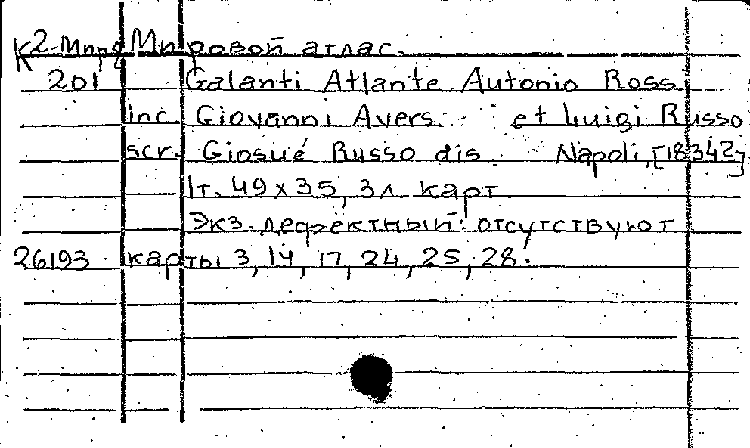 К2-Мирд Мировой атлас.
201 Galanti Atlante Autonio Ross
inc. Giovanni Avers. et Luigi Russo
scr. Giosué Russo dis. Napoli,
1т. 49x35, 3л. карт
Экз. дефектный: отсутствуют
26193 карты 3, 14, 17, 24, 25, 28.